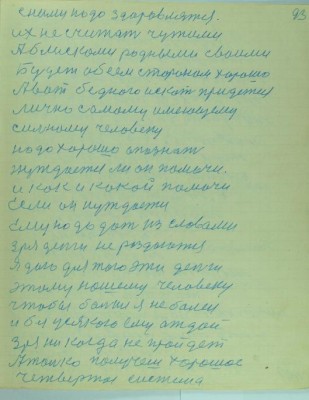 93
с ними надо здоровлятся.
их не считат чужими
А блискоми родныеми своими
Будет обеем сторонам хорошо
А вот бедного искат придется
лично самому имеющему
силному человеку
надо хорошо опознат
нуждается ли он помочи.
и как и какой помочи
Если он нуждается
Ему надо дат из словами
зря денги не роздаются
Я даю для того эти денги
этому нашему человеку
чтобы болни я не болел
и бл усякого ему отдай
зря никогда не пройдет
А только получеш хорошое
четвертоя система